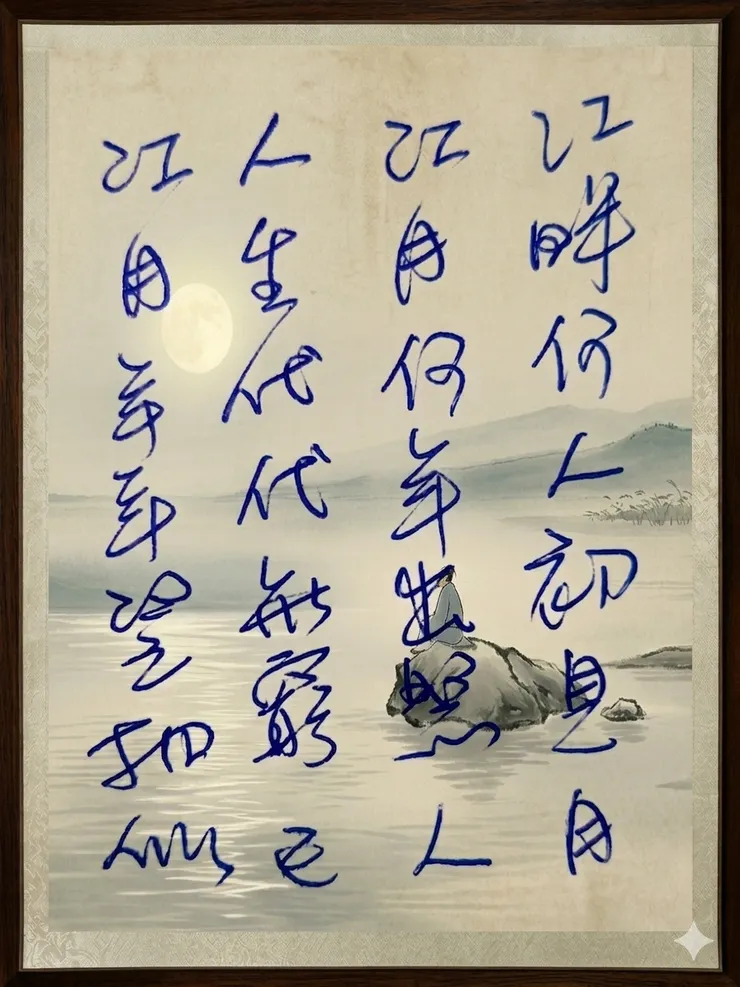 江畔何人初見月
江月何年出照人
人生代代無窮已
江月年年望相似